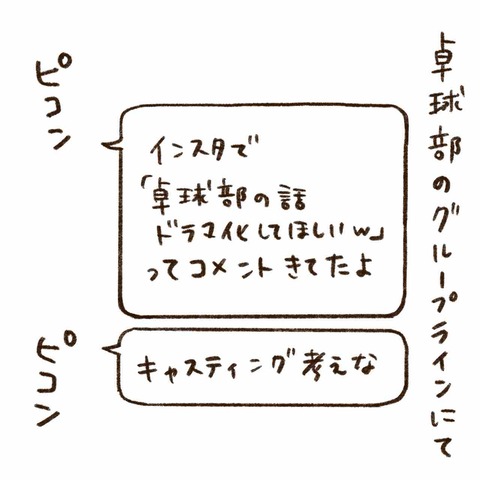 卓球部のグループラインにて
ピコン
インスタで
「卓球部の話
ドラマ化してほしいw」
ってコメントきてたよ
ピコン
キャスティング考えな